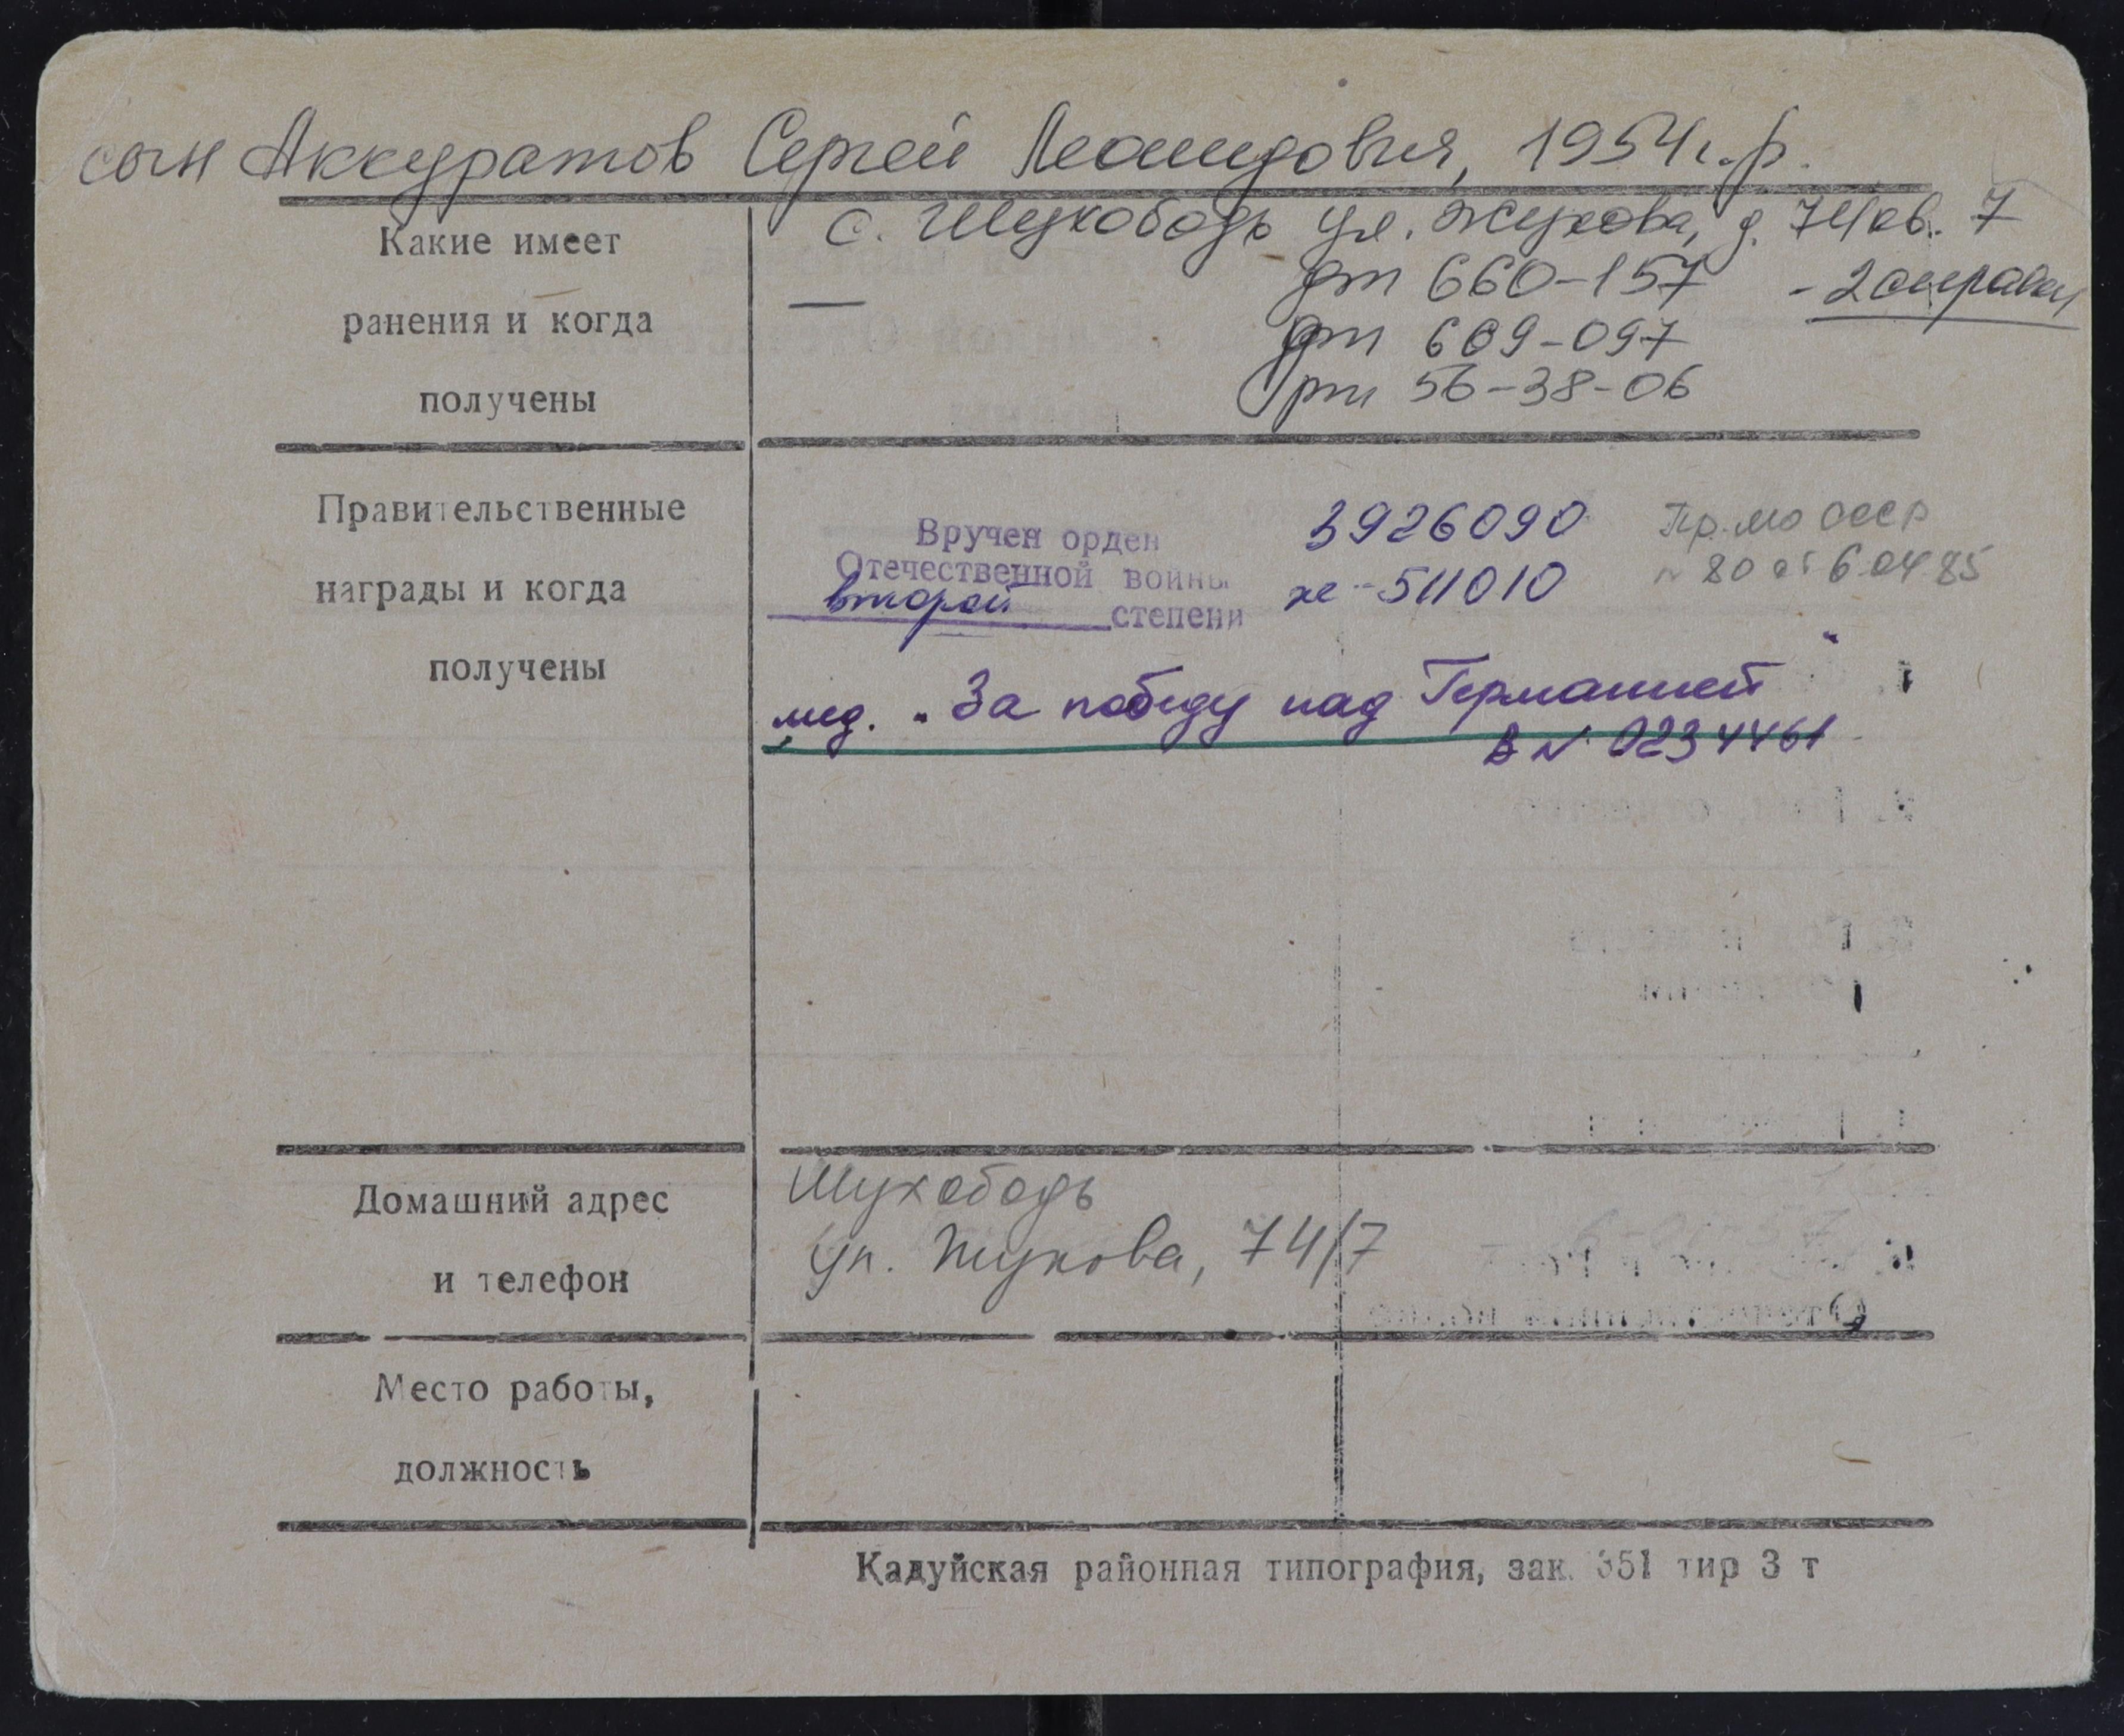 сын Аккуратов Сергей Леонидович, 1954 г.р.
с. Шухободь ул. Жукова, д. 74 кв. 7
Какие имеет
ранения и когда
получены
—
дт 660-157 - 2 справки
дт 669-097
рт 56-38-06
Правительственные
награды и когда
получены
Вручен орден
Отечественной войны
второй степени
3926090
же-511010
Пр. МО СССР
№ 80 от 6.04.85
мед. „За победу над Германией"
В № 0234461
Домашний адрес
и телефон
Шухободь
ул. Жукова, 74/7
Место работы,
должность
Кадуйская районная типография, зак. 351 тир 3 т